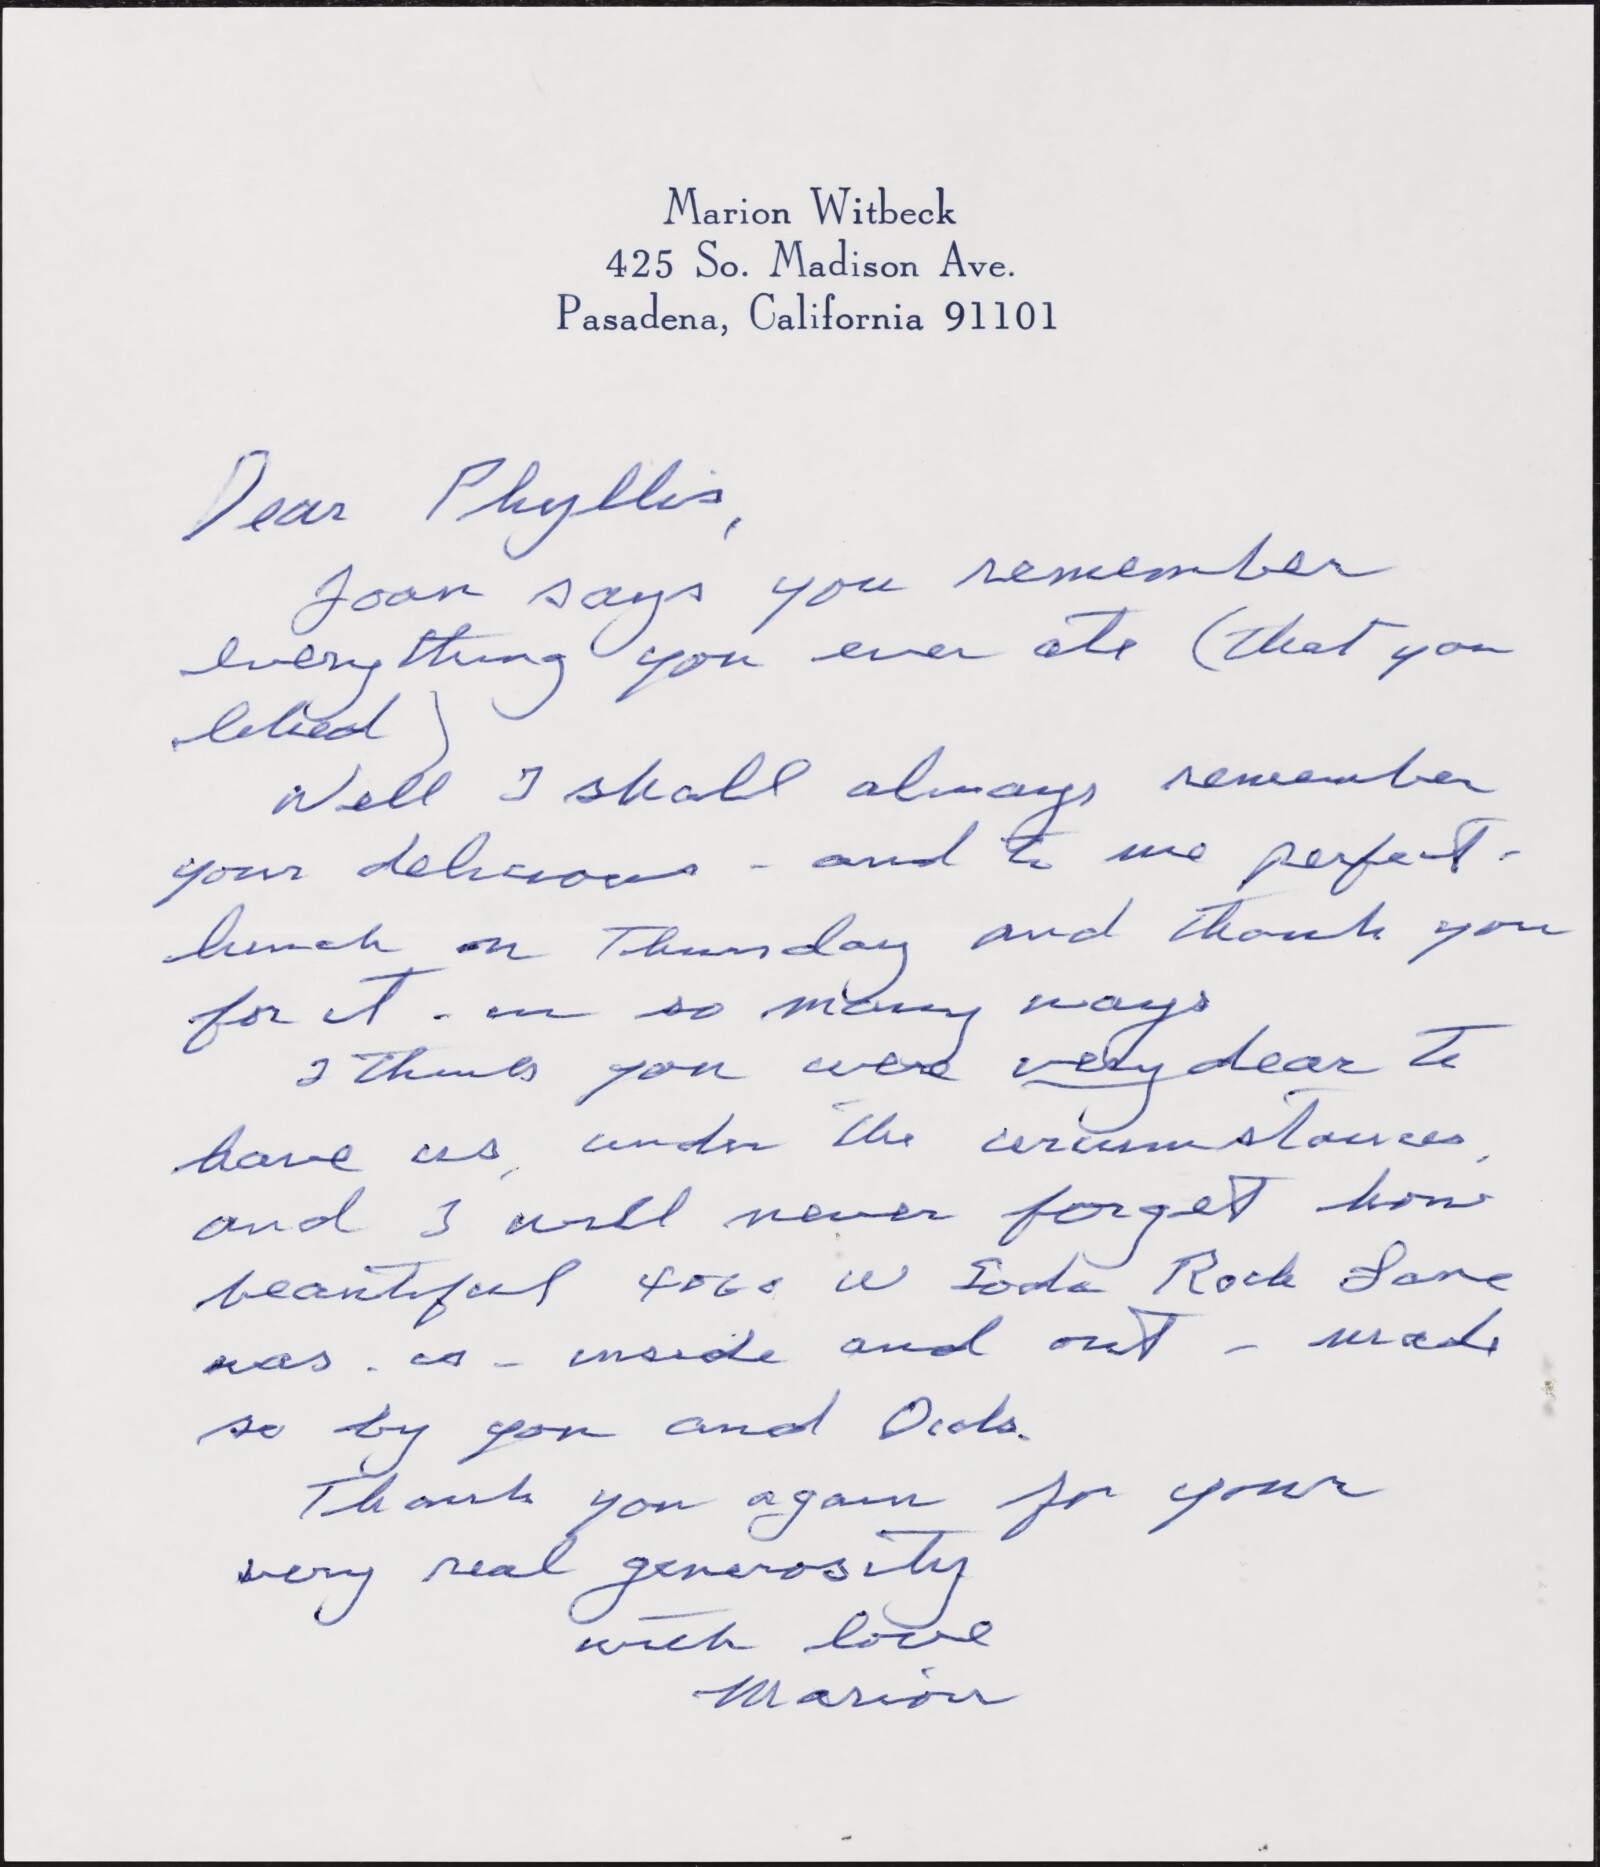 Marion Witbeck
425 So. Madison Ave.
Pasadena, California 91101
Dear Phyllis,
Joan says you remember
everything you ever ate (that you
liked)
Well I shall always remember
your delicious - and to me perfect -
lunch on Thursday and thank you
for it - in so many ways
I think you were very dear to
have us, under the circumstances,
and I will never forget how
beautiful W Soda Rock Lane
was - is - inside and out - made
so by you and Dick.
Thank you again for your
very real generosity
with love
Marion